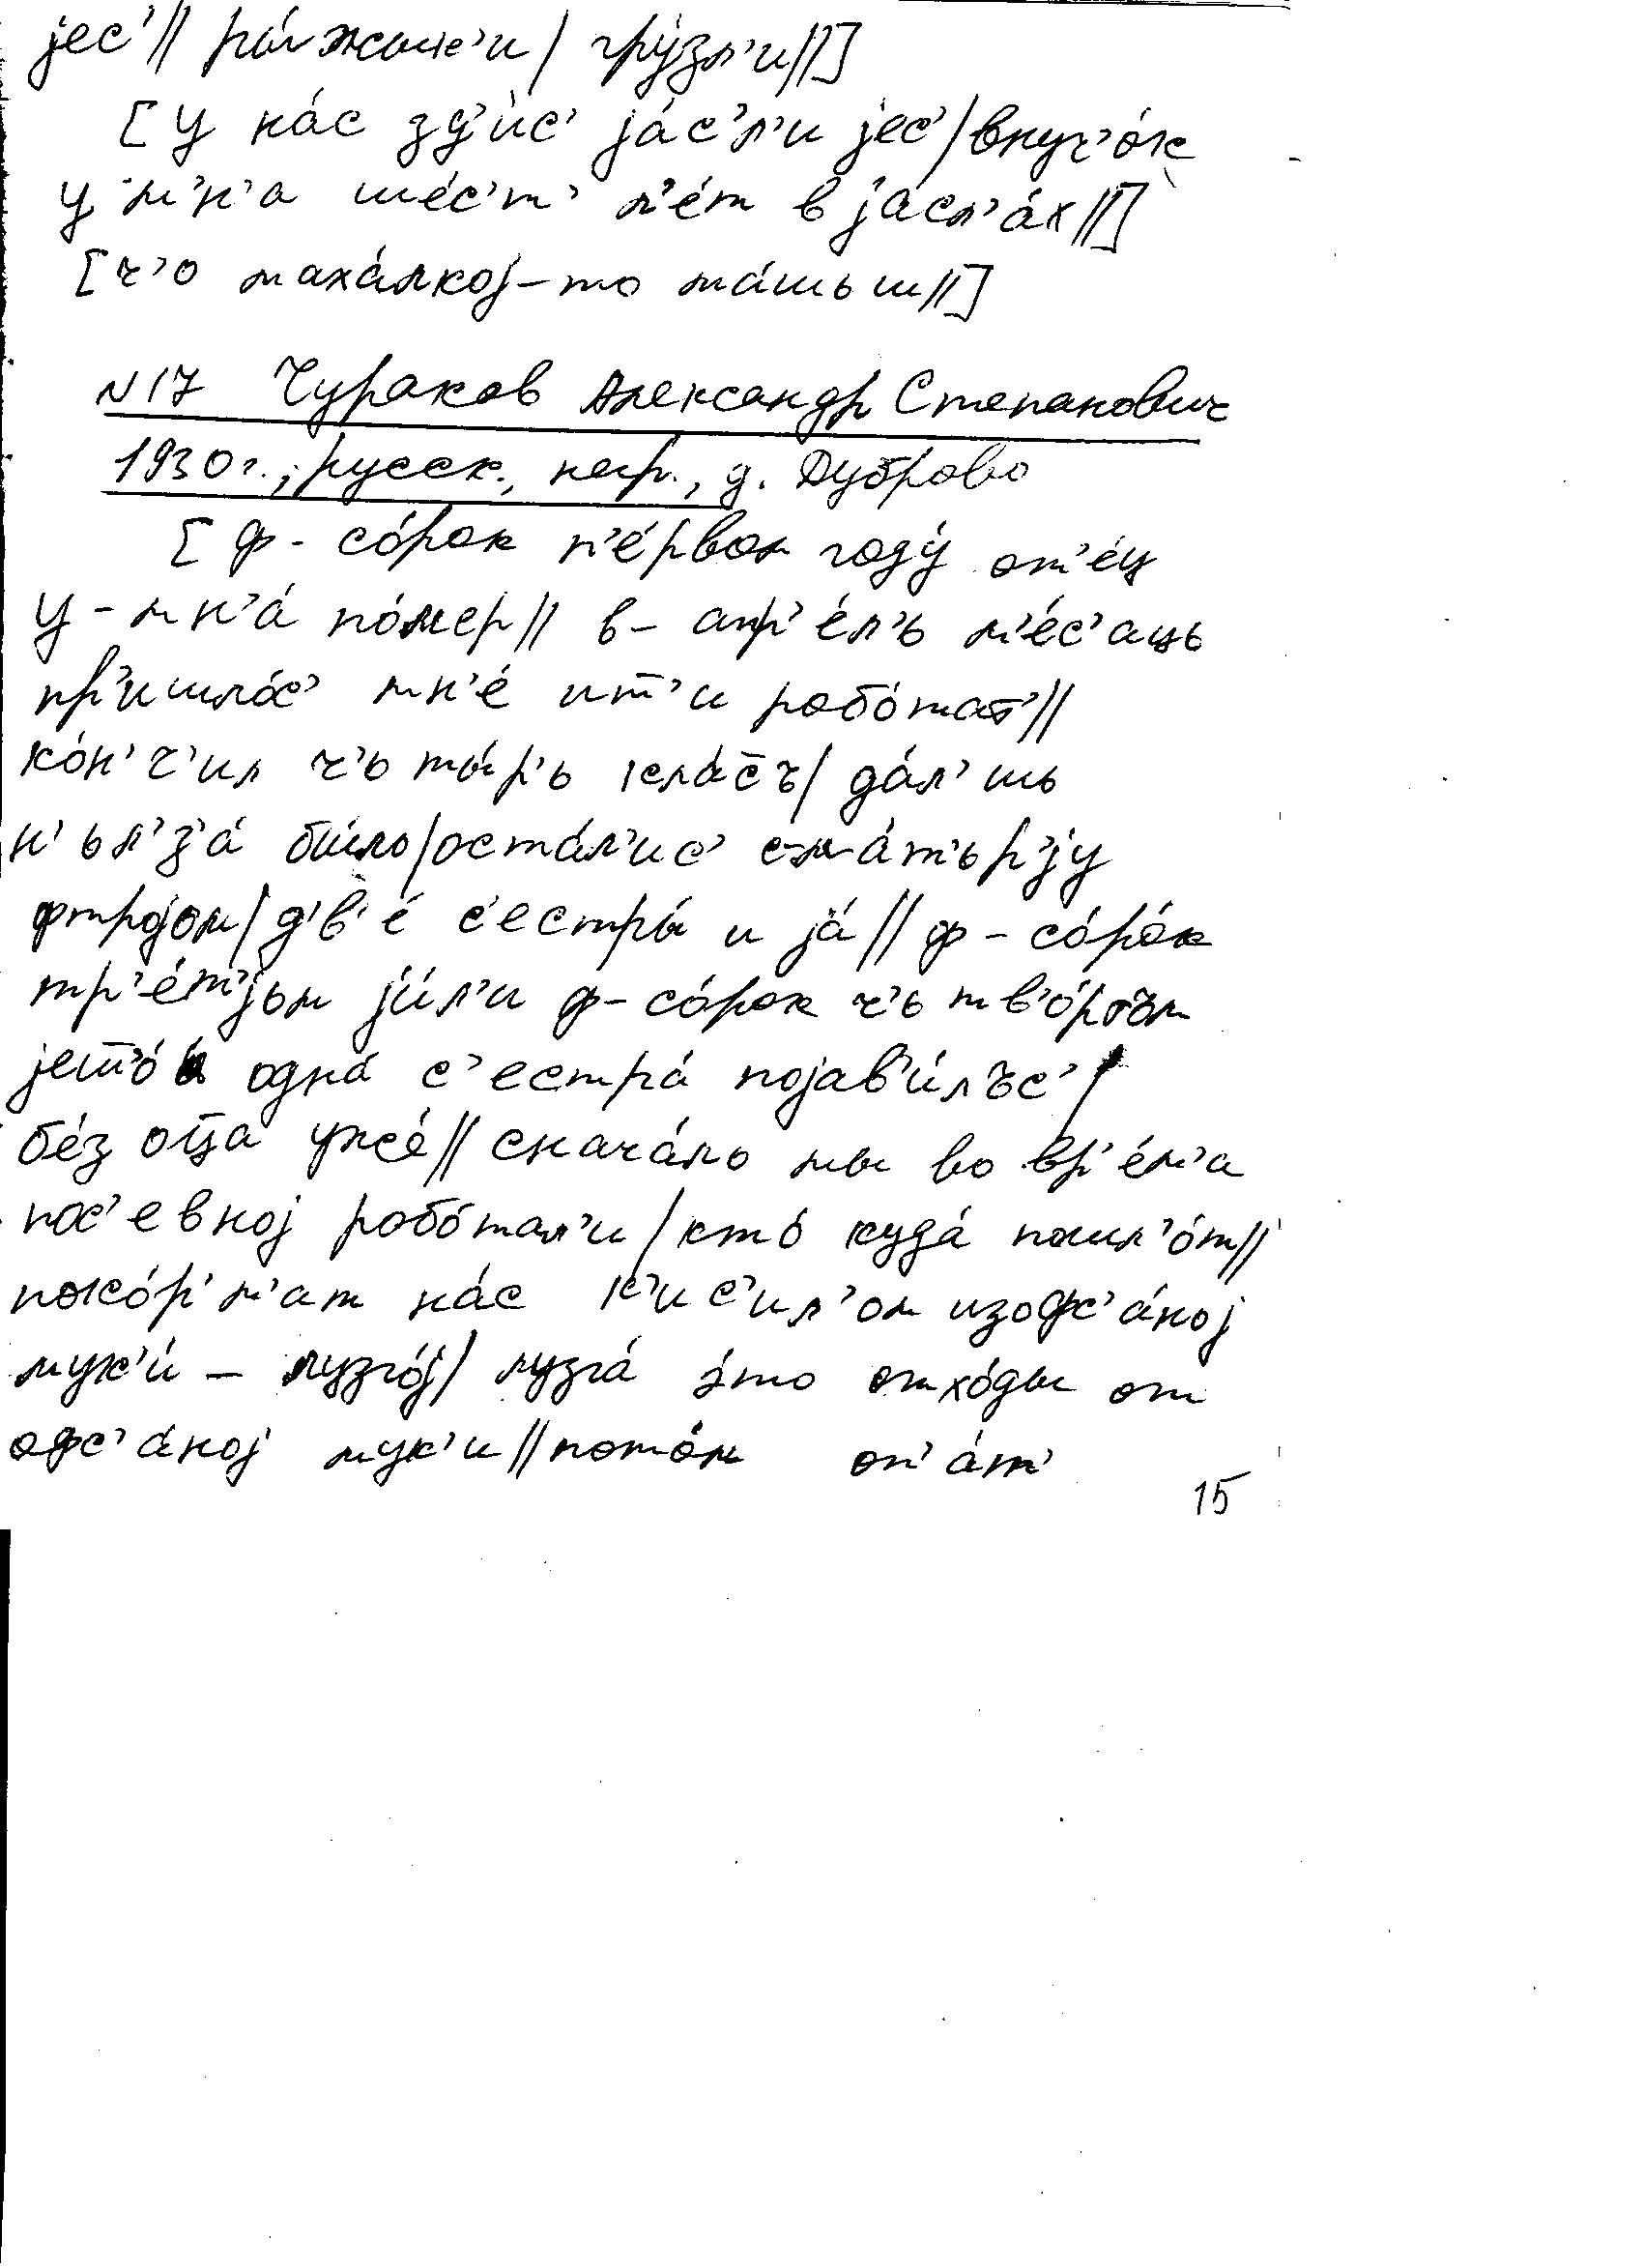 јес’|| ры́жык’и| гру́зл’и||]
[у на́с зд’и́с’ ја́с’л’и јес’|внуч’о́к
у м’н’а ше́с’т’ л’е́т в јасл’а́х||]
[ч’о маха́лкој-то ма́шьш||]
N17 Чураков Александр Степанович
1930г.; русск., негр., д. Дуброво
[ф- со́рок п’е́рвом году́ от’е́ц
у-мн’а́ по́мер|| в- апр’е́л’ь м’е́с’аць
пр’ишло́с’ мн’е́ ит̄’и робо́тат’||
ко́н’ч’ил ч’ьты́р’ь кла́с̄ъ| да́л’шь
н’ьл’з’а́ было|оста́л’ис’ сма́т’ьр’ју
фтројом|д’в’е́ с’естры́ и ја́|| ф-со́ро́к
тр’е́т’јьм јúл’и ф-со́рок ч’ьтв’о́ртъм
јеш̄’о́ одна́ с’естра́ појав’и́лъс’|
бе́з оц̄а уже́|| снача́ло мы во вр’е́м’а
пос’евној робо́тал’и|кто́ куда́ пошл’о́т||
поко́рм’ат на́с к’ис’ил’ом изофс’а́ној
мук’и́ – лузго́ј| лузга́ э́то отхо́ды от
офс’а́ној мук’и||пото́м оп’а́т’
15